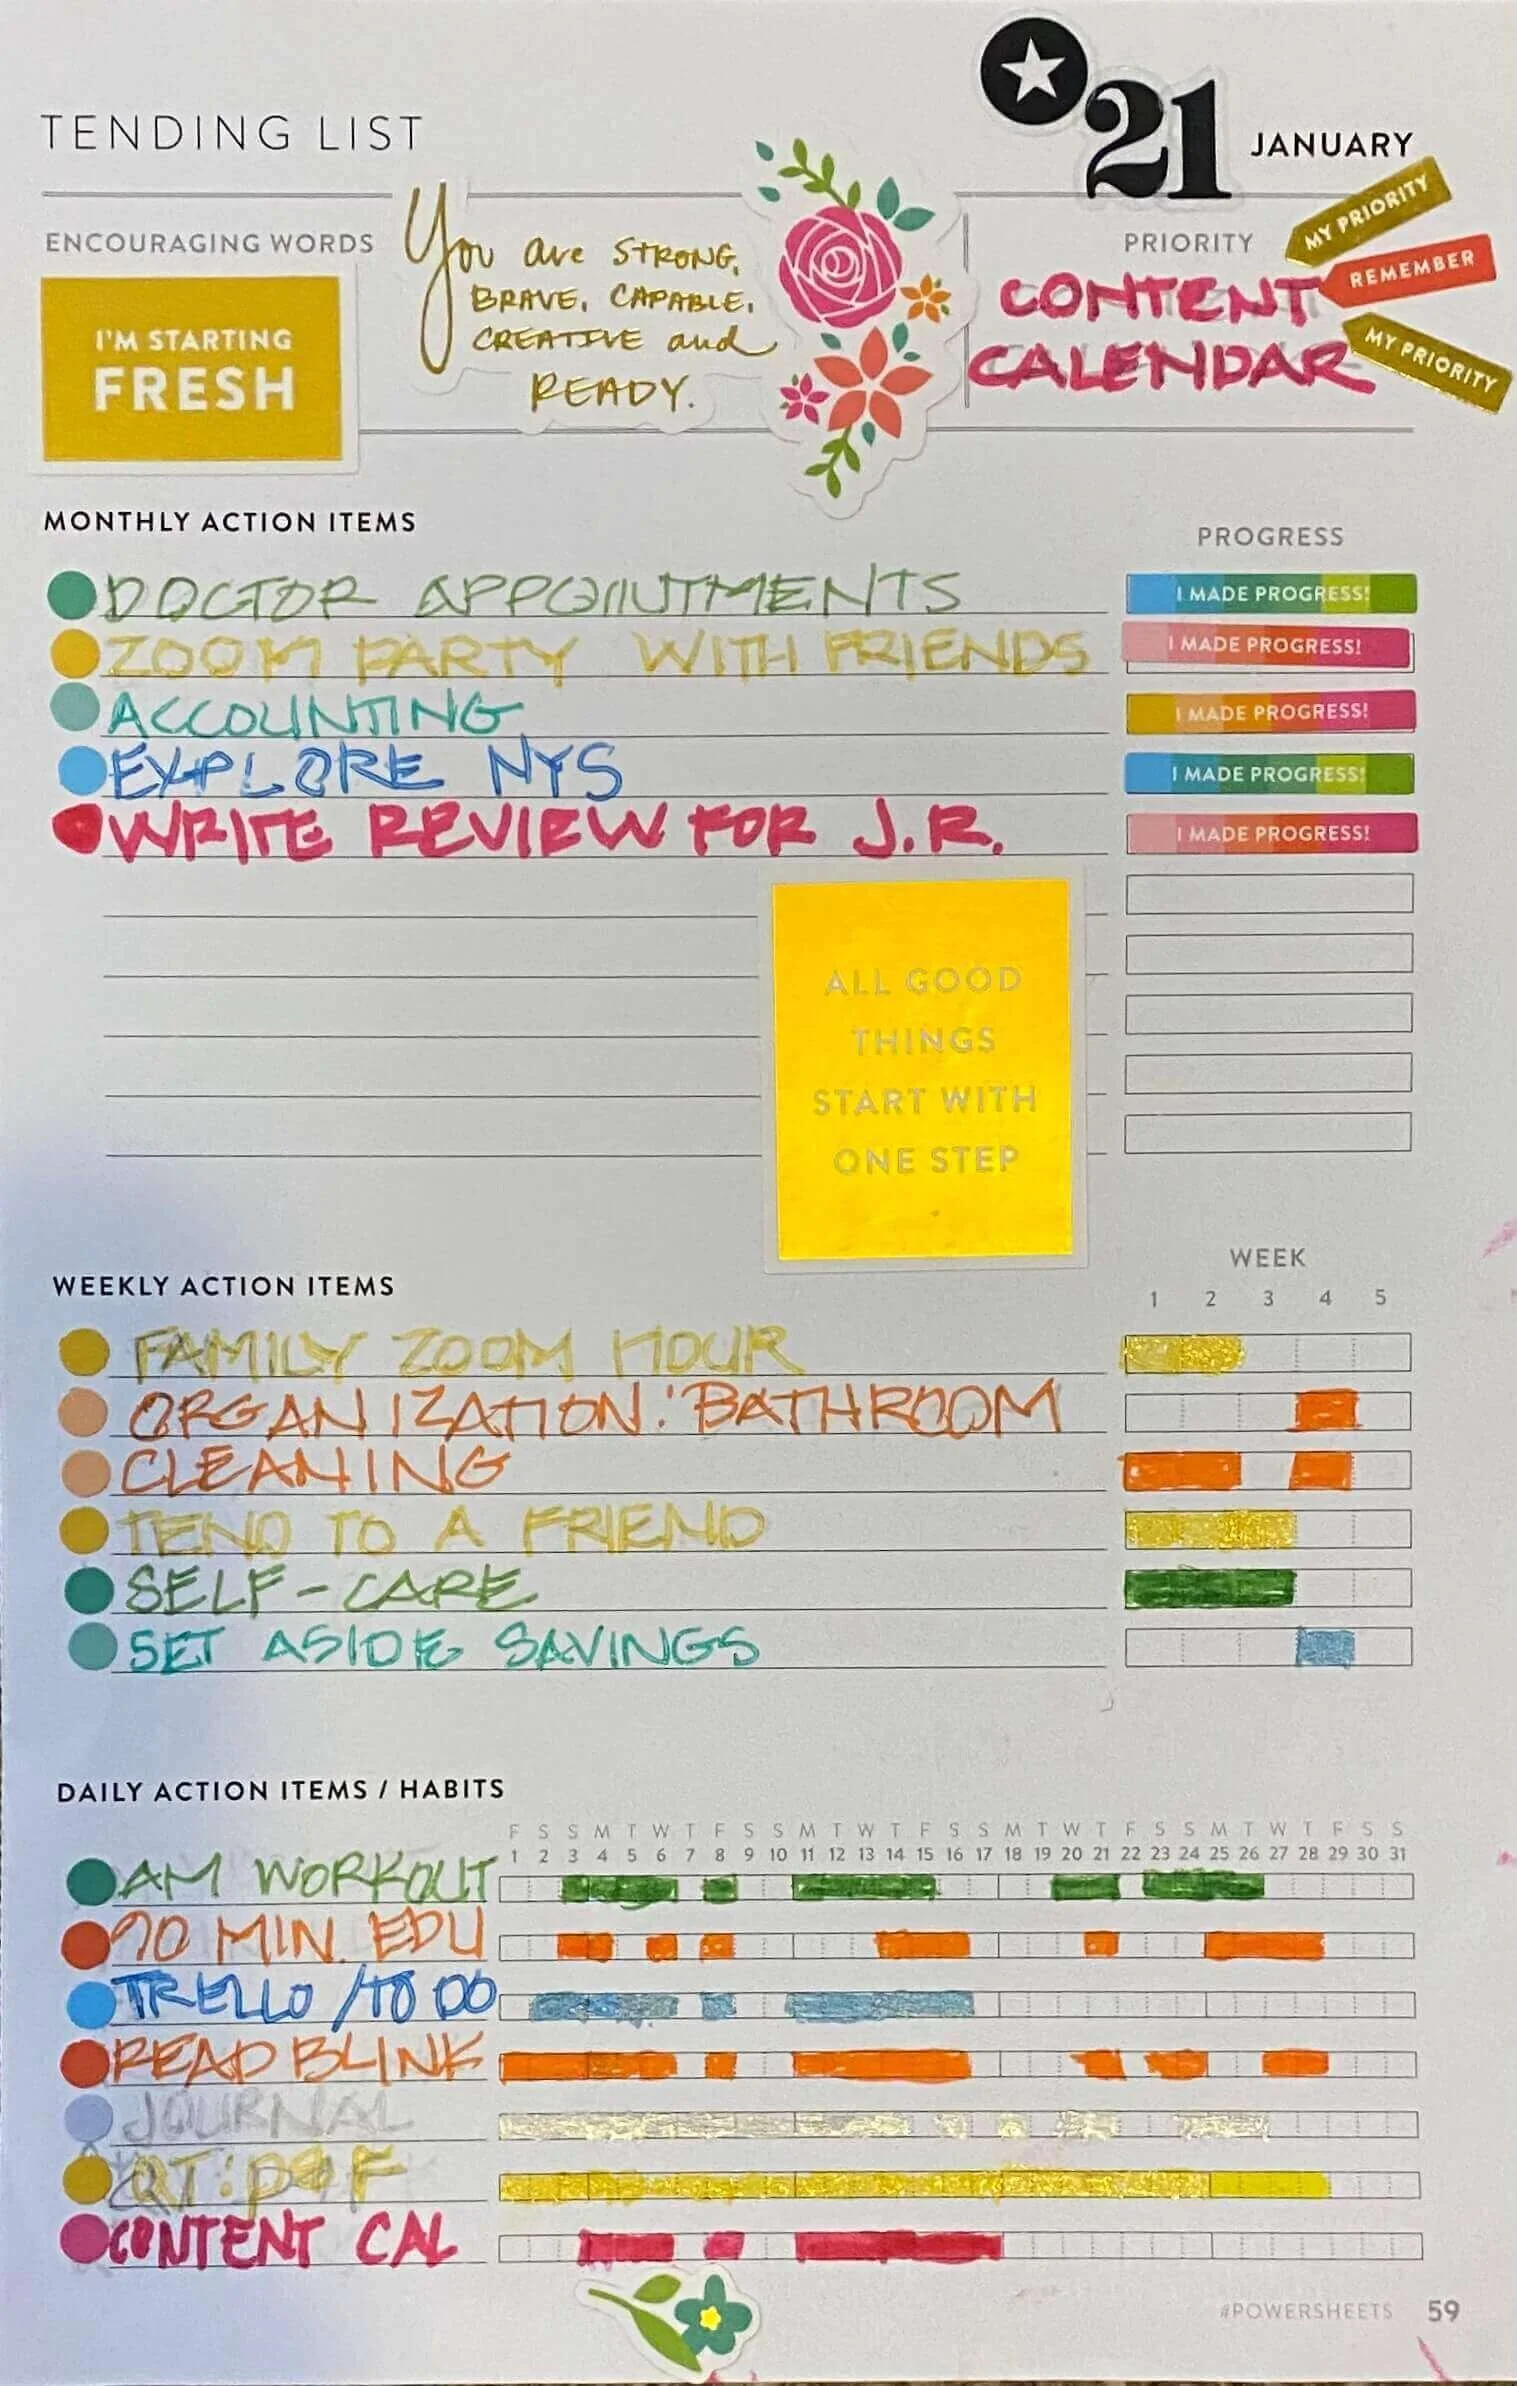 21 JANUARY
TENDING LIST
ENCOURAGING WORDS
I'M STARTING
FRESH
You are STRONG,
BRAVE, CAPABLE,
CREATIVE and
READY.
PRIORITY
CONTENT
CALENDAR
MY PRIORITY
REMEMBER
MY PRIORITY
MONTHLY ACTION ITEMS
PROGRESS
DOCTOR APPOINTMENTS I MADE PROGRESS!
ZOOM PARTY WITH FRIENDS I MADE PROGRESS!
ACCOUNTING I MADE PROGRESS!
EXPLORE NYS I MADE PROGRESS!
WRITE REVIEW FOR J.R. I MADE PROGRESS!
ALL GOOD
THINGS
START WITH
ONE STEP
WEEKLY ACTION ITEMS
WEEK
1 2 3 4 5
FAMILY ZOOM HOUR
ORGANIZATION: BATHROOM
CLEANING
TEND TO A FRIEND
SELF-CARE
SET ASIDE SAVINGS
DAILY ACTION ITEMS / HABITS
F S S M T W T F S S M T W T F S S M T W T F S S M T W T F S S
1 2 3 4 5 6 7 8 9 10 11 12 13 14 15 16 17 18 19 20 21 22 23 24 25 26 27 28 29 30 31
AM WORKOUT
90 MIN. EDU
TRELLO / TO DO
READ BLINK
JOURNAL
QT: P&F
CONTENT CAL
#POWERSHEETS 59